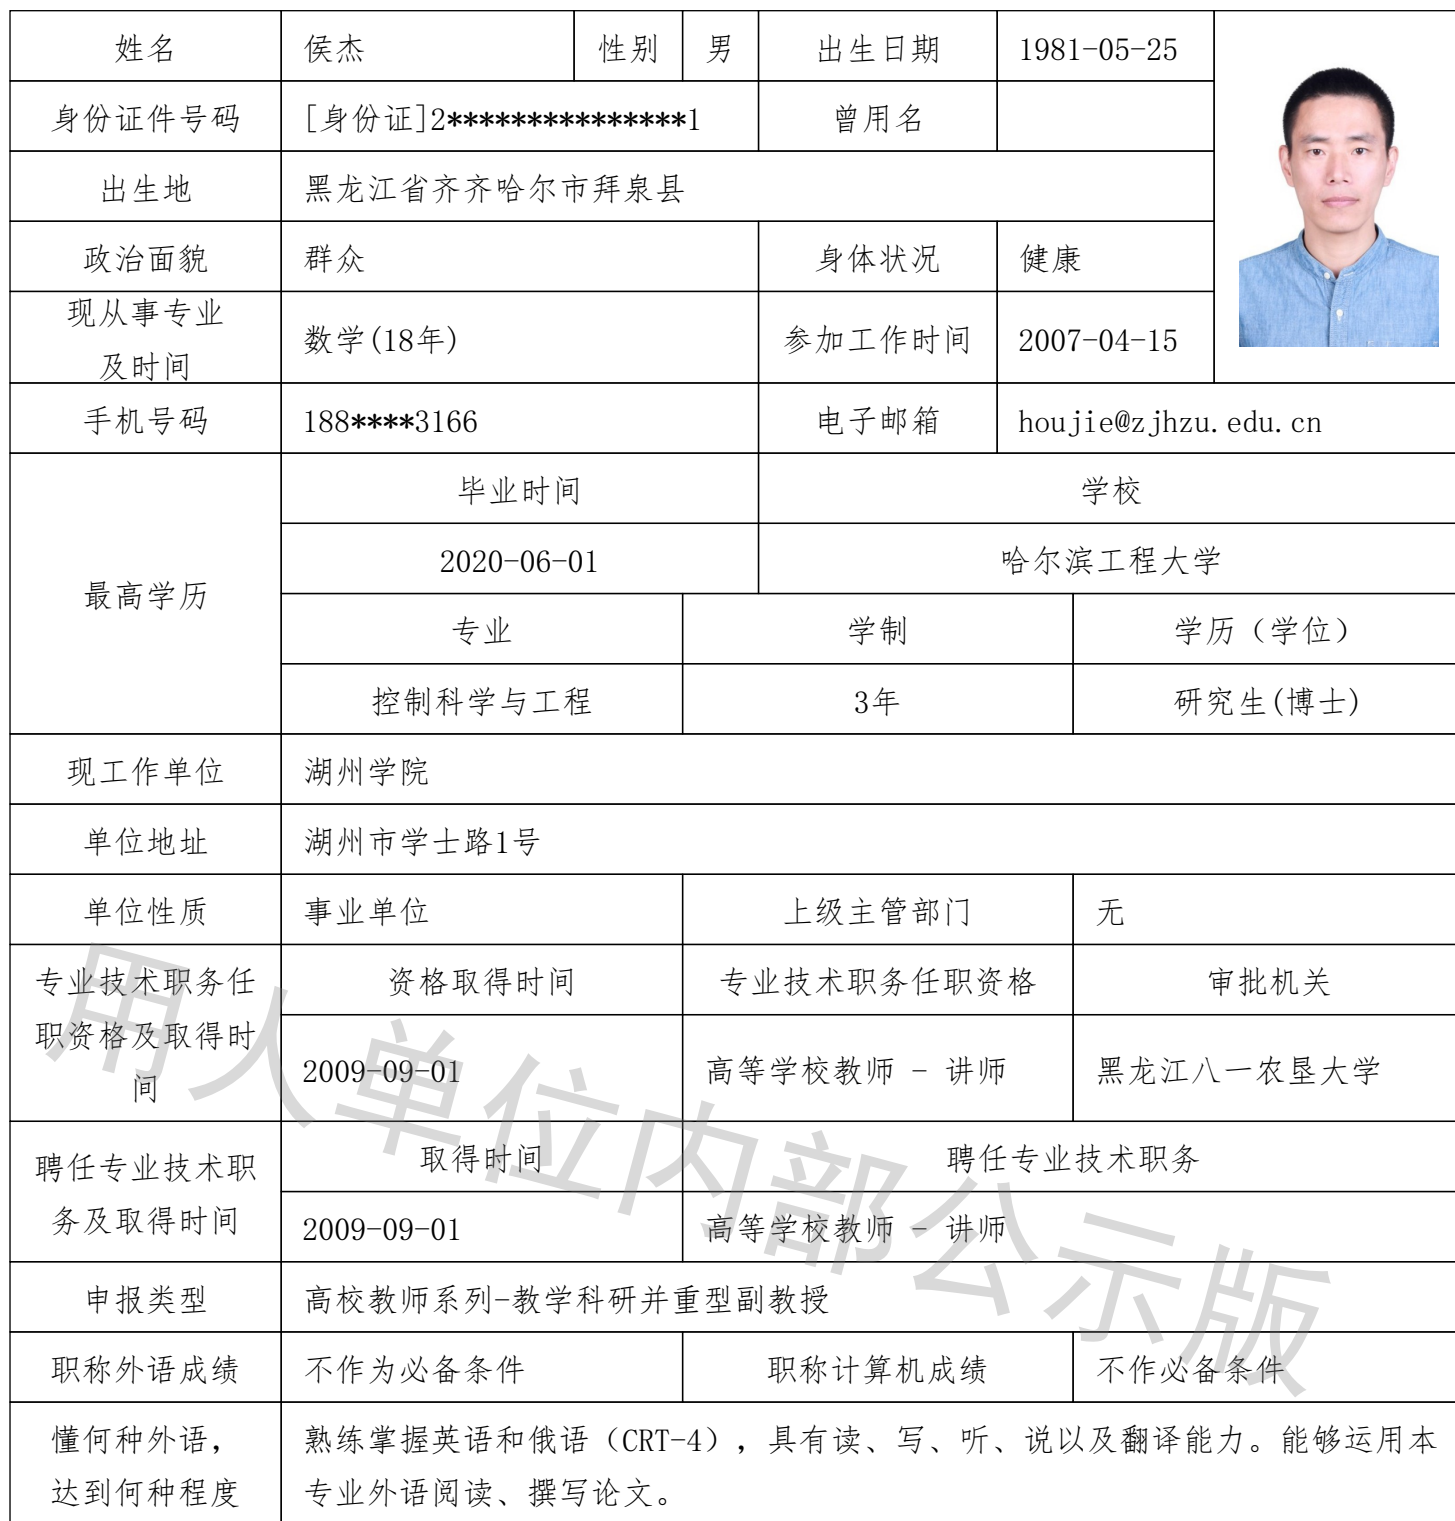 姓名 侯杰 性别 男 出生日期 1981-05-25
身份证件号码 [身份证]2***************1 曾用名
出生地 黑龙江省齐齐哈尔市拜泉县
政治面貌 群众 身体状况 健康
现从事专业
及时间
数学(18年) 参加工作时间 2007-04-15
手机号码 188****3166 电子邮箱 houjie@zjhzu.edu.cn
最高学历
毕业时间 学校
2020-06-01 哈尔滨工程大学
专业 学制 学历（学位）
控制科学与工程 3年 研究生(博士)
现工作单位 湖州学院
单位地址 湖州市学士路1号
单位性质 事业单位 上级主管部门 无
专业技术职务任
职资格及取得时
间
资格取得时间 专业技术职务任职资格 审批机关
2009-09-01 高等学校教师 - 讲师 黑龙江八一农垦大学
聘任专业技术职
务及取得时间
取得时间 聘任专业技术职务
2009-09-01 高等学校教师 - 讲师
申报类型 高校教师系列-教学科研并重型副教授
职称外语成绩 不作为必备条件 职称计算机成绩 不作必备条件
懂何种外语，
达到何种程度
熟练掌握英语和俄语（CRT-4），具有读、写、听、说以及翻译能力。能够运用本
专业外语阅读、撰写论文。
用人单位内部公示版